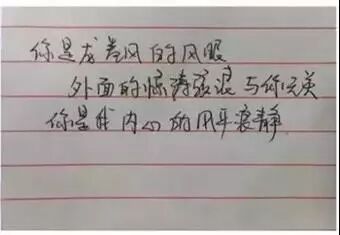 你是龙卷风的风眼
外面的惊涛骇浪与你无关
你是我内心的风平浪静